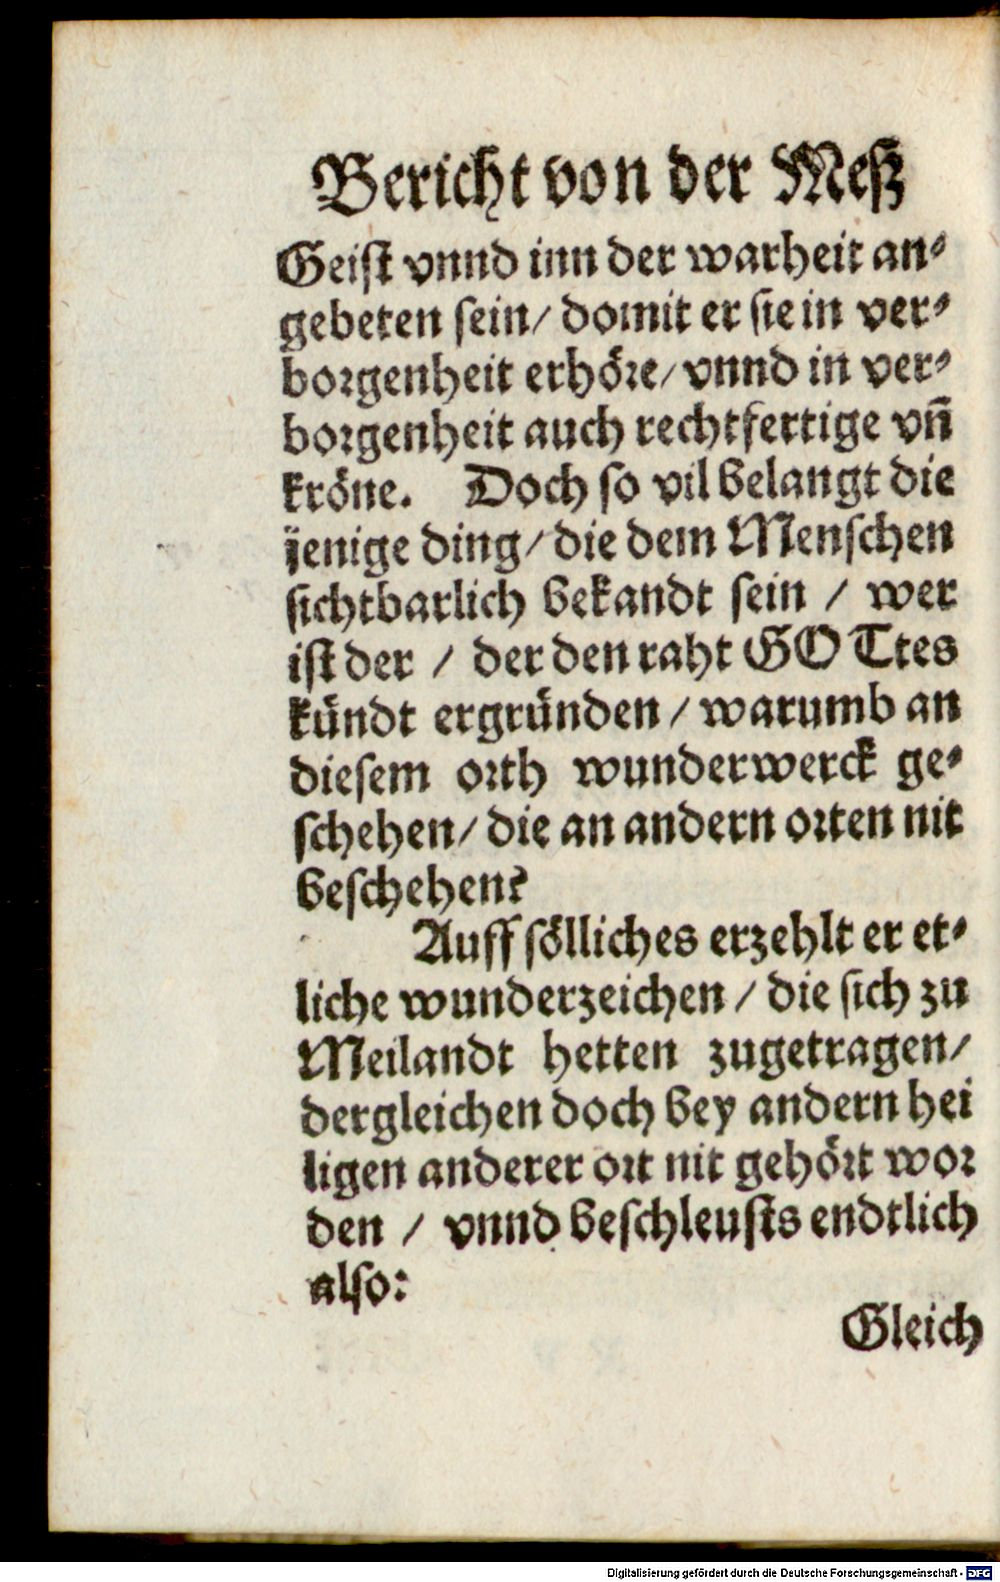 Bericht von der Meß
Geist vnnd inn der warheit an-
gebeten sein/ domit er sie in ver-
borgenheit erhöre/ vnnd in ver-
borgenheit auch rechtfertige vñ
kröne. Doch so vil belangt die
jenige ding/ die dem Menschen
sichtbarlich bekandt sein / wer
ist der / der den raht GOTtes
kündt ergründen / warumb an
diesem orth wunderwerck ge-
schehen/ die an andern orten nit
beschehen?
Auff sölliches erzehlt er et-
liche wunderzeichen / die sich zu
Meilandt hetten zugetragen/
dergleichen doch bey andern hei
ligen anderer ort nit gehört wor
den / vnnd beschleusts endtlich
also:
Gleich
Digitalisierung gefördert durch die Deutsche Forschungsgemeinschaft - DFG